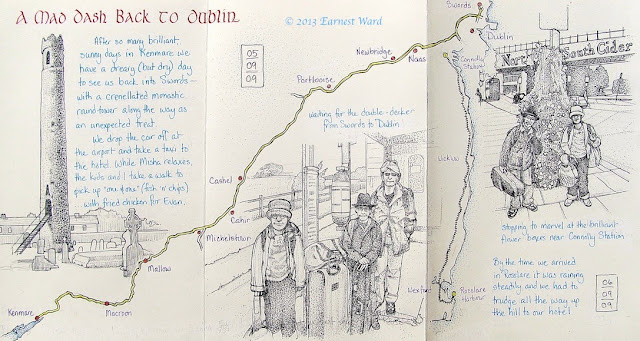 A Mad Dash Back to Dublin
© 2013 Earnest Ward
After so many brilliant,
sunny days in Kenmare we
have a dreary (but dry) day
to see us back into Swords –
with a crenellated monastic
round tower along the way as
an unexpected treat.
We drop the car off at
the airport and take a taxi to
the hotel. While Misha relaxes,
the kids and I take a walk to
pick up (fish 'n' chips)
with fried chicken for Evan.
05
09
09
Swords
Dublin
Connolly Station
Naas
Newbridge
Portlaoise
Cashel
Cahir
Mitchelstown
Mallow
Macroom
Kenmare
waiting for the double-decker
from Swords to Dublin
Wicklow
Wexford
Rosslare
Harbour
South Cider
stopping to marvel at the brilliant
flower boxes near Connolly Station
By the time we arrived
in Rosslare it was raining
steadily and we had to
trudge all the way up
the hill to our hotel
06
09
09